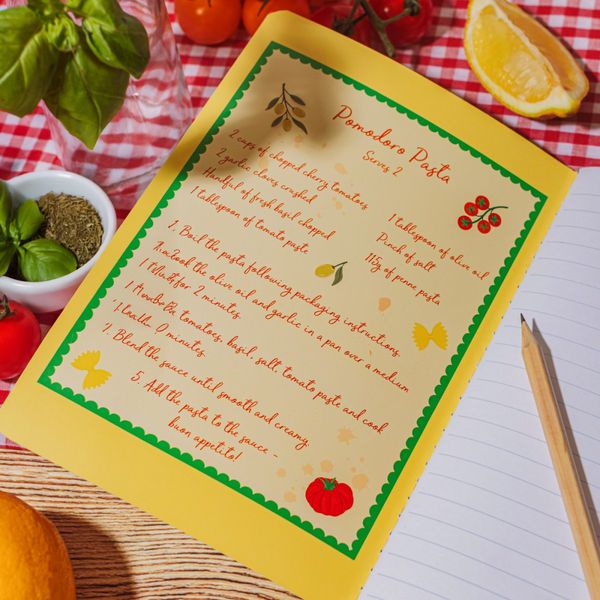 Pomodoro Pasta
Serves 2
2 cups of chopped cherry tomatoes
2 garlic cloves crushed
Handful of fresh basil chopped
1 tablespoon of tomato paste
1 tablespoon of olive oil
Pinch of salt
115g of penne pasta
1. Boil the pasta following packaging instructions.
the olive oil and garlic in a pan over a medium
for 2 minutes.
tomatoes, basil, salt, tomato paste and cook
0 minutes.
Blend the sauce until smooth and creamy
5. Add the pasta to the sauce -
buon appetito!